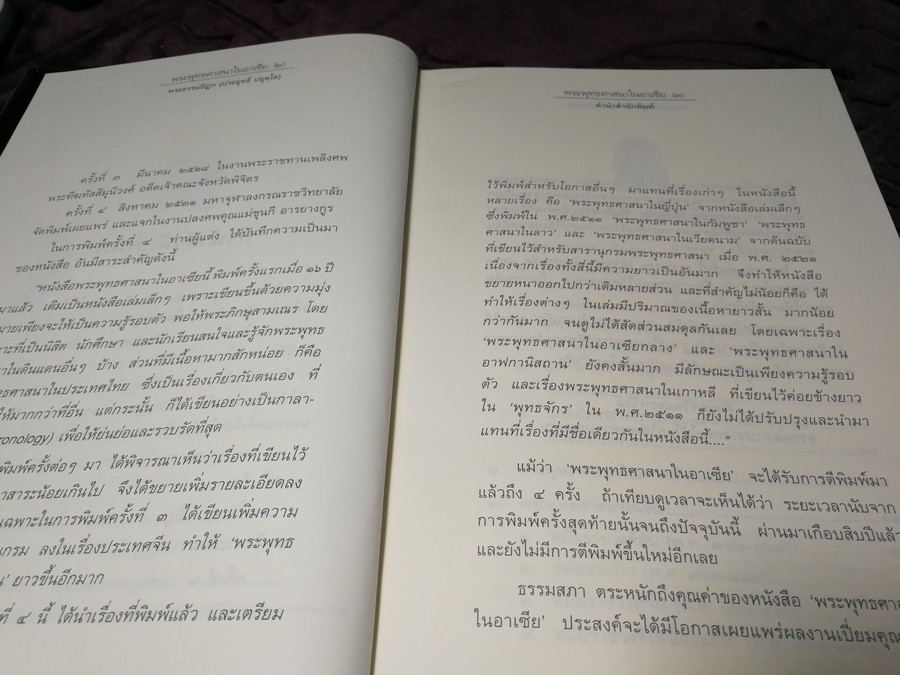 พระพุทธศาสนาในอาเซีย ๒๗
พระธรรมปิฎก (ประยุทธ์ ปยุตฺโต)
ครั้งที่ ๓ มีนาคม ๒๕๒๘ ในงานพระราชทานเพลิงศพ
พระทีฆทัสสีมุนีวงศ์ อดีตเจ้าคณะจังหวัดพิจิตร
ครั้งที่ ๔ สิงหาคม ๒๕๓๑ มหาจุฬาลงกรณราชวิทยาลัย
จัดพิมพ์เผยแพร่ และแจกในงานปลงศพคุณแม่ชุนกี อารยางกูร
ในการพิมพ์ครั้งที่ ๔ ท่านผู้แต่ง ได้บันทึกความเป็นมา
ของหนังสือ อันมีสาระสำคัญดังนี้
"หนังสือพระพุทธศาสนาในอาเซียนี้ พิมพ์ครั้งแรกเมื่อ ๑๖ ปี
มาแล้ว เดิมเป็นหนังสือเล่มเล็กๆ เพราะเขียนขึ้นด้วยความมุ่ง
มายเพียงจะให้เป็นความรู้รอบตัว พอให้พระภิกษุสามเณร โดย
าะที่เป็นนิสิต นักศึกษา และนักเรียนสนใจและรู้จักพระพุทธ
าในดินแดนอื่นๆ บ้าง ส่วนที่มีเนื้อหามากสักหน่อย ก็คือ
ทธศาสนาในประเทศไทย ซึ่งเป็นเรื่องเกี่ยวกับตนเอง ที่
ให้มากกว่าที่อื่น แต่กระนั้น ก็ได้เขียนอย่างเป็นกาลา-
ronology) เพื่อให้ย่นย่อและรวบรัดที่สุด
พิมพ์ครั้งต่อๆ มา ได้พิจารณาเห็นว่าเรื่องที่เขียนไว้
าสาระน้อยเกินไป จึงได้ขยายเพิ่มรายละเอียดลง
ฉพาะในการพิมพ์ครั้งที่ ๓ ได้เขียนเพิ่มความ
กรม ลงในเรื่องประเทศจีน ทำให้ 'พระพุทธ
น' ยาวขึ้นอีกมาก
ที่ ๔ นี้ ได้นำเรื่องที่พิมพ์แล้ว และเตรียม
พระพุทธศาสนาในอาเซีย ๒๗
คำนำสำนักพิมพ์
ไว้พิมพ์สำหรับโอกาสอื่นๆ มาแทนที่เรื่องเก่าๆ ในหนังสือนี้
หลายเรื่อง คือ 'พระพุทธศาสนาในญี่ปุ่น' จากหนังสือเล่มเล็กๆ
ซึ่งพิมพ์ใน พ.ศ.๒๕๑๑ 'พระพุทธศาสนาในกัมพูชา' 'พระพุทธ
ศาสนาในลาว' และ 'พระพุทธศาสนาในเวียดนาม' จากต้นฉบับ
ที่เขียนไว้สำหรับสารานุกรมพระพุทธศาสนา เมื่อ พ.ศ. ๒๕๒๑
เนื่องจากเรื่องทั้งสี่นี้มีความยาวเป็นอันมาก จึงทำให้หนังสือ
ขยายหนาออกไปกว่าเดิมหลายส่วน และที่สำคัญไม่น้อยก็คือ ได้
ทำให้เรื่องต่างๆ ในเล่มมีปริมาณของเนื้อหายาวสั้น มากน้อย
กว่ากันมาก จนดูไม่ได้สัดส่วนสมดุลกันเลย โดยเฉพาะเรื่อง
'พระพุทธศาสนาในอาเซียกลาง' และ 'พระพุทธศาสนาใน
อาฟกานิสถาน' ยังคงสั้นมาก มีลักษณะเป็นเพียงความรู้รอบ
ตัว และเรื่องพระพุทธศาสนาในเกาหลี ที่เขียนไว้ค่อยข้างยาว
ใน 'พุทธจักร' ใน พ.ศ.๒๕๑๑ ก็ยังไม่ได้ปรับปรุงและนำมา
แทนที่เรื่องที่มีชื่อเดียวกันในหนังสือนี้...."
แม้ว่า 'พระพุทธศาสนาในอาเซีย' จะได้รับการตีพิมพ์มา
แล้วถึง ๔ ครั้ง ถ้าเทียบดูเวลาจะเห็นได้ว่า ระยะเวลานับจาก
การพิมพ์ครั้งสุดท้ายนั้นจนถึงปัจจุบันนี้ ผ่านมาเกือบสิบปีแล้
และยังไม่มีการตีพิมพ์ขึ้นใหม่อีกเลย
ธรรมสภา ตระหนักถึงคุณค่าของหนังสือ 'พระพุทธศา
ในอาเซีย' ประสงค์จะได้มีโอกาสเผยแพร่ผลงานเปี่ยมคุณ